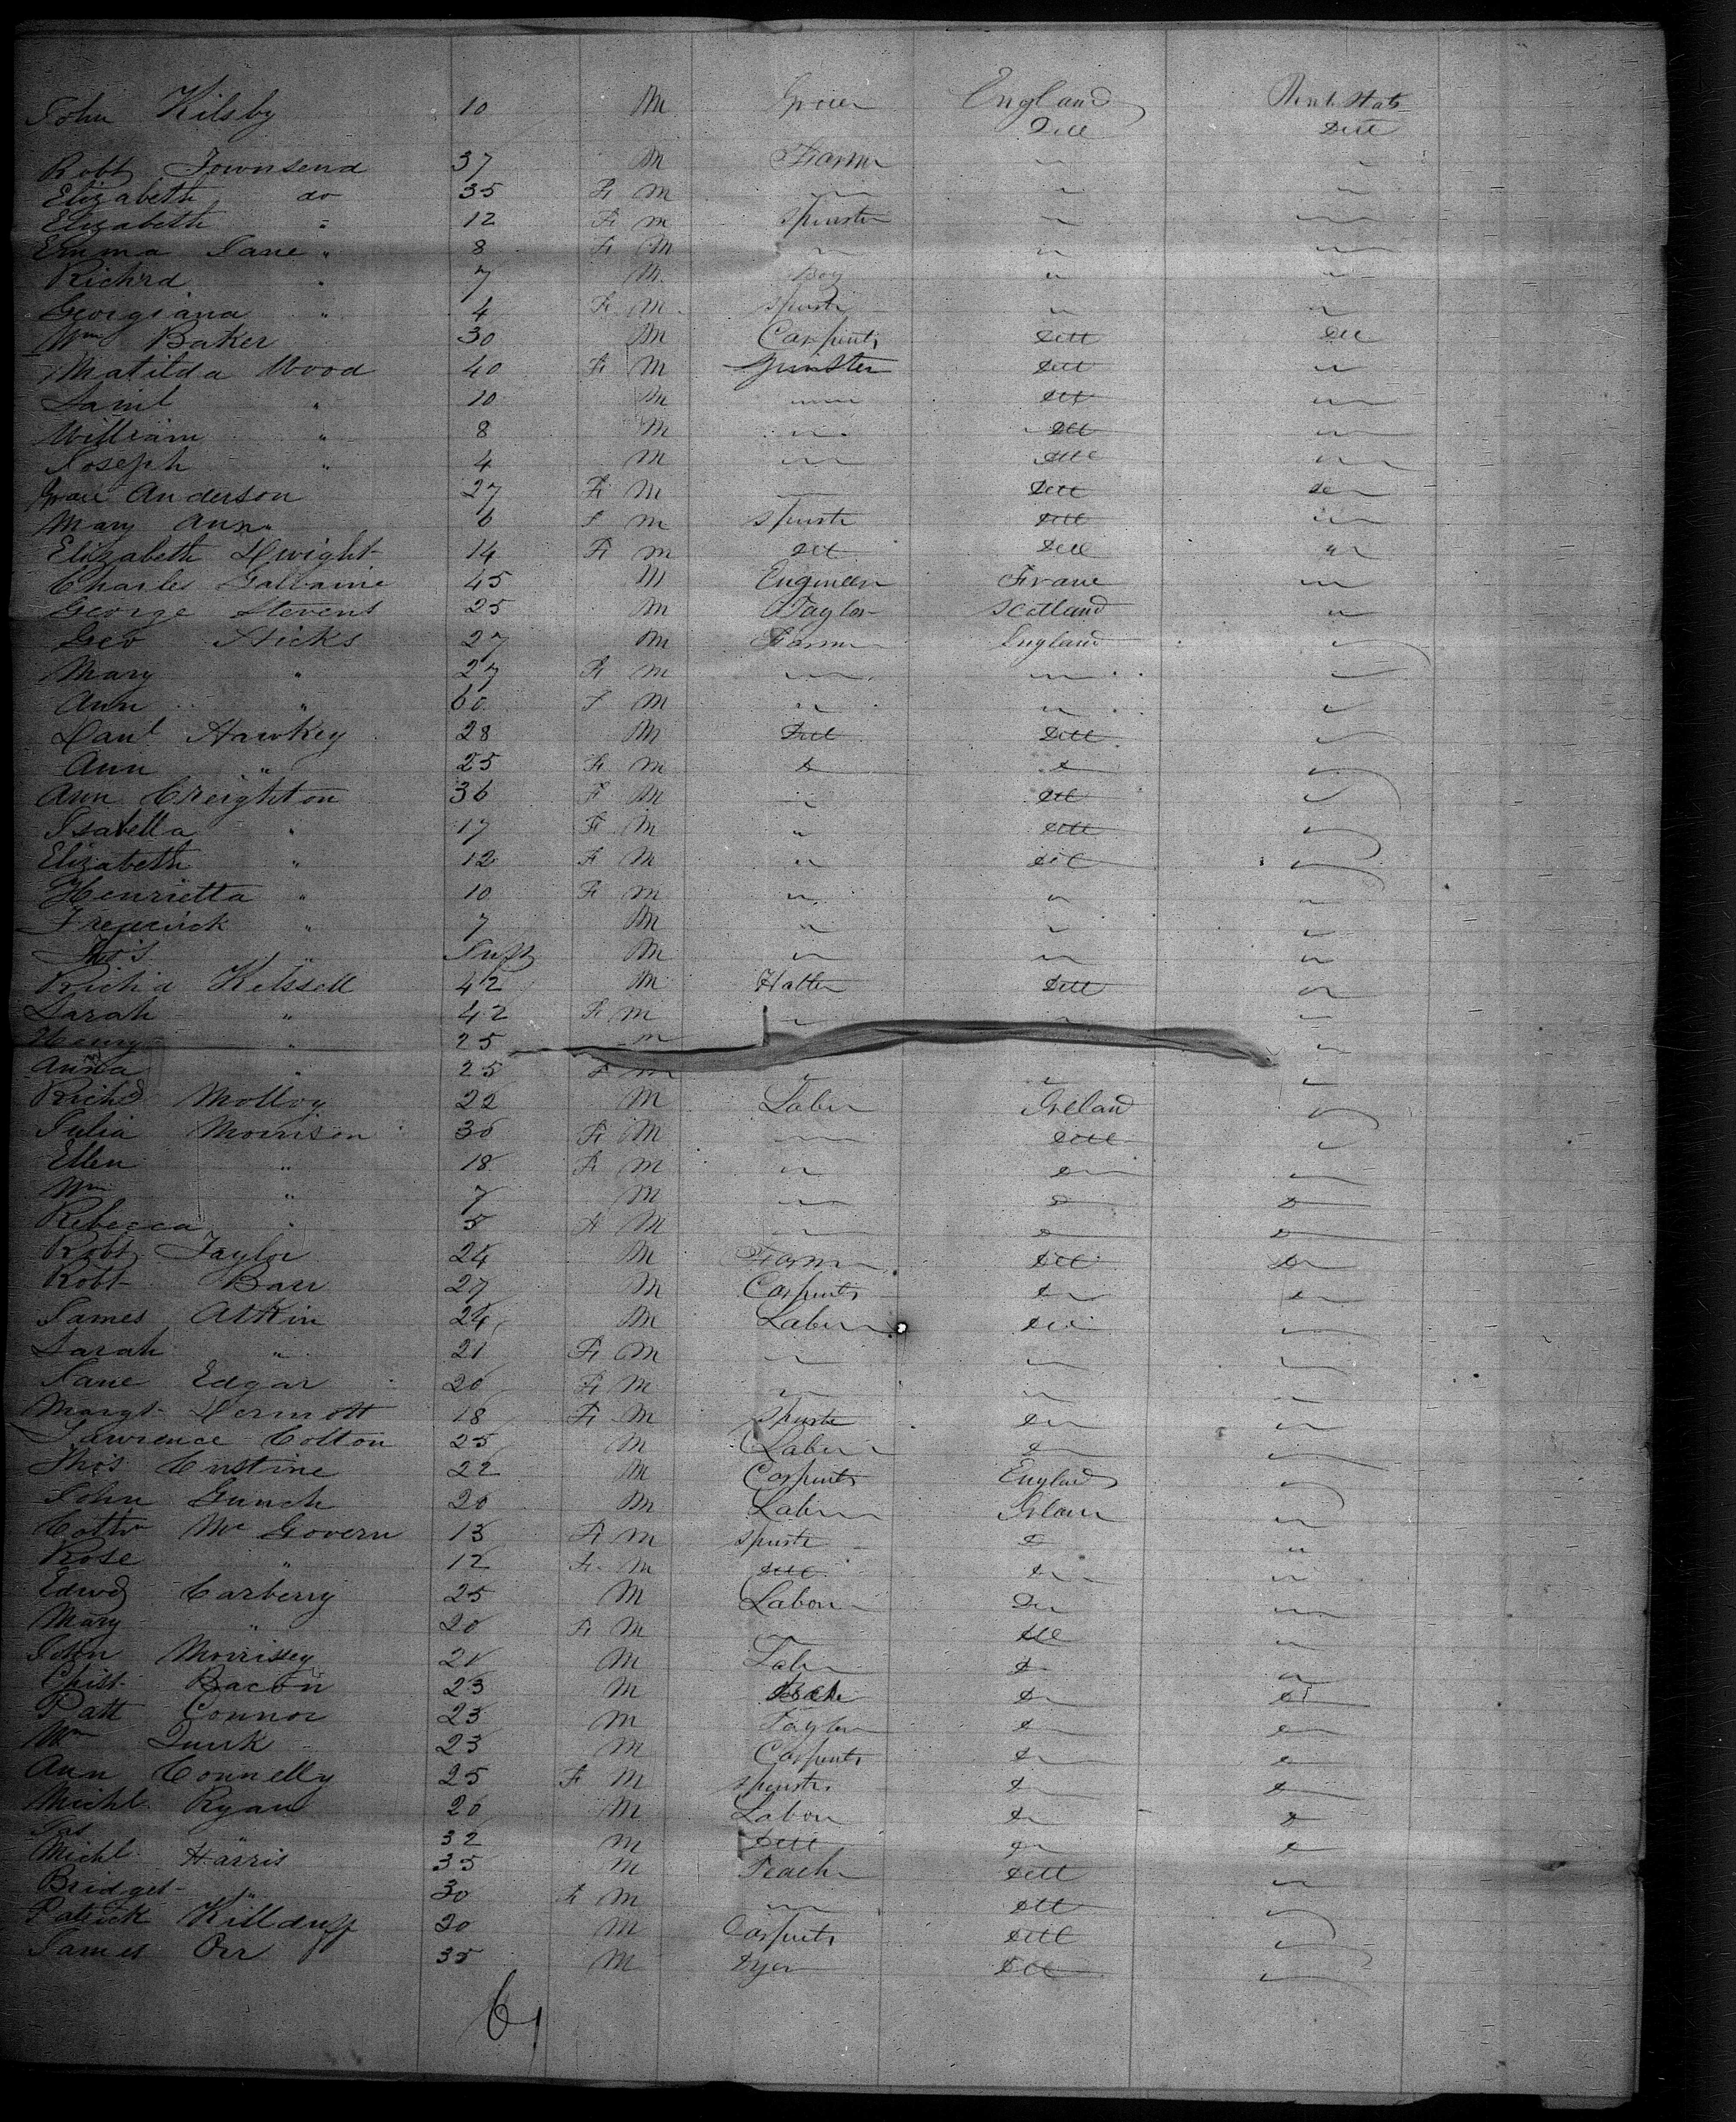 John Kilsby 10 M Grocer England Unit. Stats
Ditt Ditt
Robt Townsend 37 M Farmr " "
Elizabeth do 35 Fe M " "
Elizabeth " 12 Fe M Spinster " "
Emma Jane " 8 Fe M " " "
Richrd " 7 M Boy " "
Georgiana " 4 Fe M Spinstr " "
Wm Baker 30 M Carpentr Ditt Ditt
Matilda Wood 40 Fe M Spinster Ditt "
Saml " 10 M " Ditt "
William " 8 M " Ditt "
Joseph " 4 M " Ditt "
Anderson 27 Fe M Ditt "
Mary Ann " 6 F M Spinstr Ditt "
Elizabeth Dwight 14 Fe M Ditt Ditt "
Charles 45 M Engineer France "
George Stevens 25 M Taylor Scotland "
Geo Hicks 27 M Farmr England "
Mary " 27 Fe M " " "
Ann " 60 F M " " "
Danl Hawkey 28 M Ditt Ditt "
Ann " 25 Fe M " " "
Ann Creighton 36 F M " Ditt "
Isabella " 17 Fe M " Ditt "
Elizabeth " 12 Fe M " Ditt "
Henrietta " 10 Fe M " " "
Frederick " 7 M " " "
Thos " Inft M " " "
Richd 42 M Hatter Ditt "
Sarah " 42 Fe M " " "
Henry " 25 M "
Anna " 25 F M " " "
Richd Molloy 22 M Labr Ireland "
Julia Morrison 30 Fe M " Ditt "
Ellen " 18 Fe M " " "
Wm " 7 M " " "
Rebecca " 5 Fe M " " "
Robt Taylor 24 M Farmr Ditt "
Robt Barr 27 M Carpentr " "
James Atkin 24 M Labr Ditt "
Sarah " 21 Fe M " " "
Jane Edgar 20 Fe M " " "
Margt Dermott 18 Fe M Spinstr " "
Lawrence Colton 25 M Labr " "
Thos 22 M Carpentr England "
John 20 M Labr "
Mc Govern 13 Fe M Spinstr " "
Rose " 12 Fe M Ditt " "
Edwd Carberry 25 M Labour " "
Mary " 20 Fe M Ditt "
John Morrissey M Labr " "
Christ Bacon 23 M " "
Patt Connor 23 M Taylor " "
Wm Quirk 23 M Carpentr " "
Ann Connelly 25 F M Spinstr " "
Michl Ryan 20 M Labour " "
Jas " 32 M Ditt " "
Michl Harris 35 M Teachr Ditt "
Bridget " 30 Fe M " Ditt "
Patrick Killduff 30 M Carpentr Ditt "
James Orr 35 M Dyer Ditt "
61